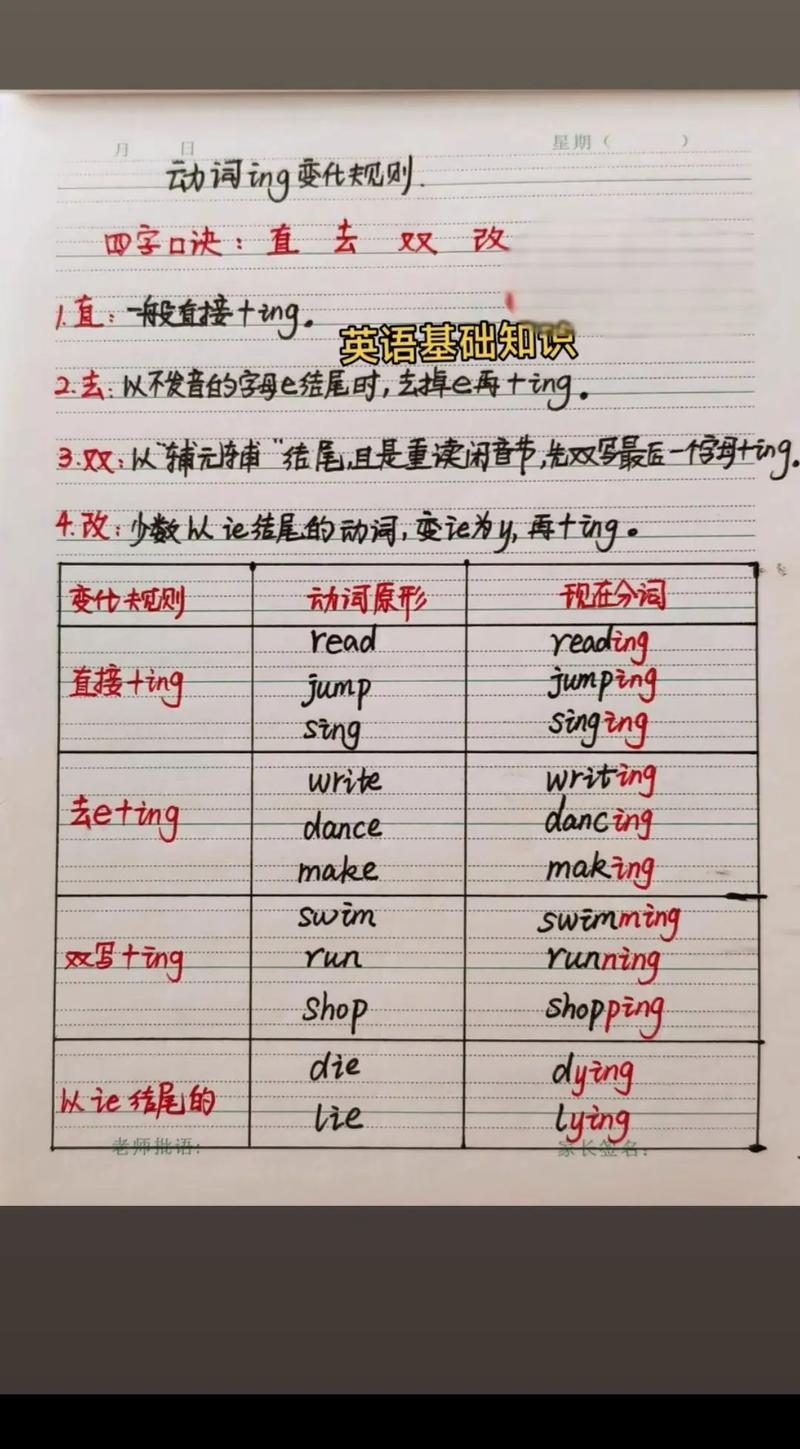 月 日 星期（ ）
动词ing变化规则.
四字口诀：直 去 双 改
1.直：一般直接+ing。
英语基础知识
2.去：以不发音的字母e结尾时,去掉e再+ing。
3.双：以"辅元辅"结尾,且是重读闭音节,先双写最后一个字母+ing.
4.改：少数以ie结尾的动词,变ie为y,再+ing。
变化规则 动词原形 现在分词
read reading
直接+ing jump jumping
sing singing
write writing
去e+ing dance dancing
make making
swim swimming
双写+ing run running
shop shopping
die dying
以ie结尾的 lie lying
老师批语: 家长签名: